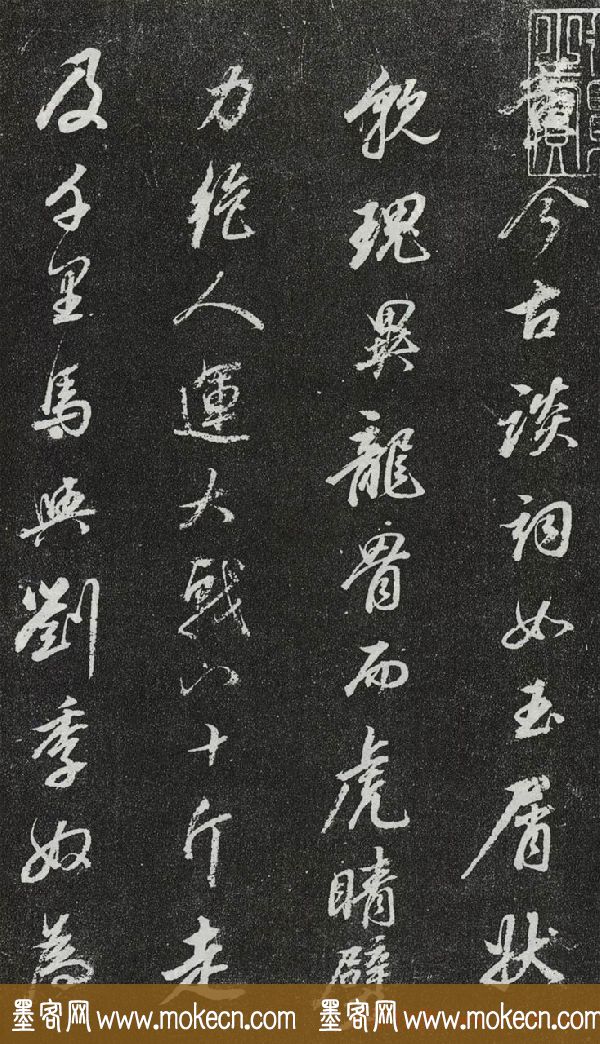 今古談詞如玉屑狀
貌瑰異龍骨而虎睛臂
力絕人運大戟八十斤走
及千里馬與劉季奴為
墨客网 www.mokecn.com 墨客网 www.mokecn.com